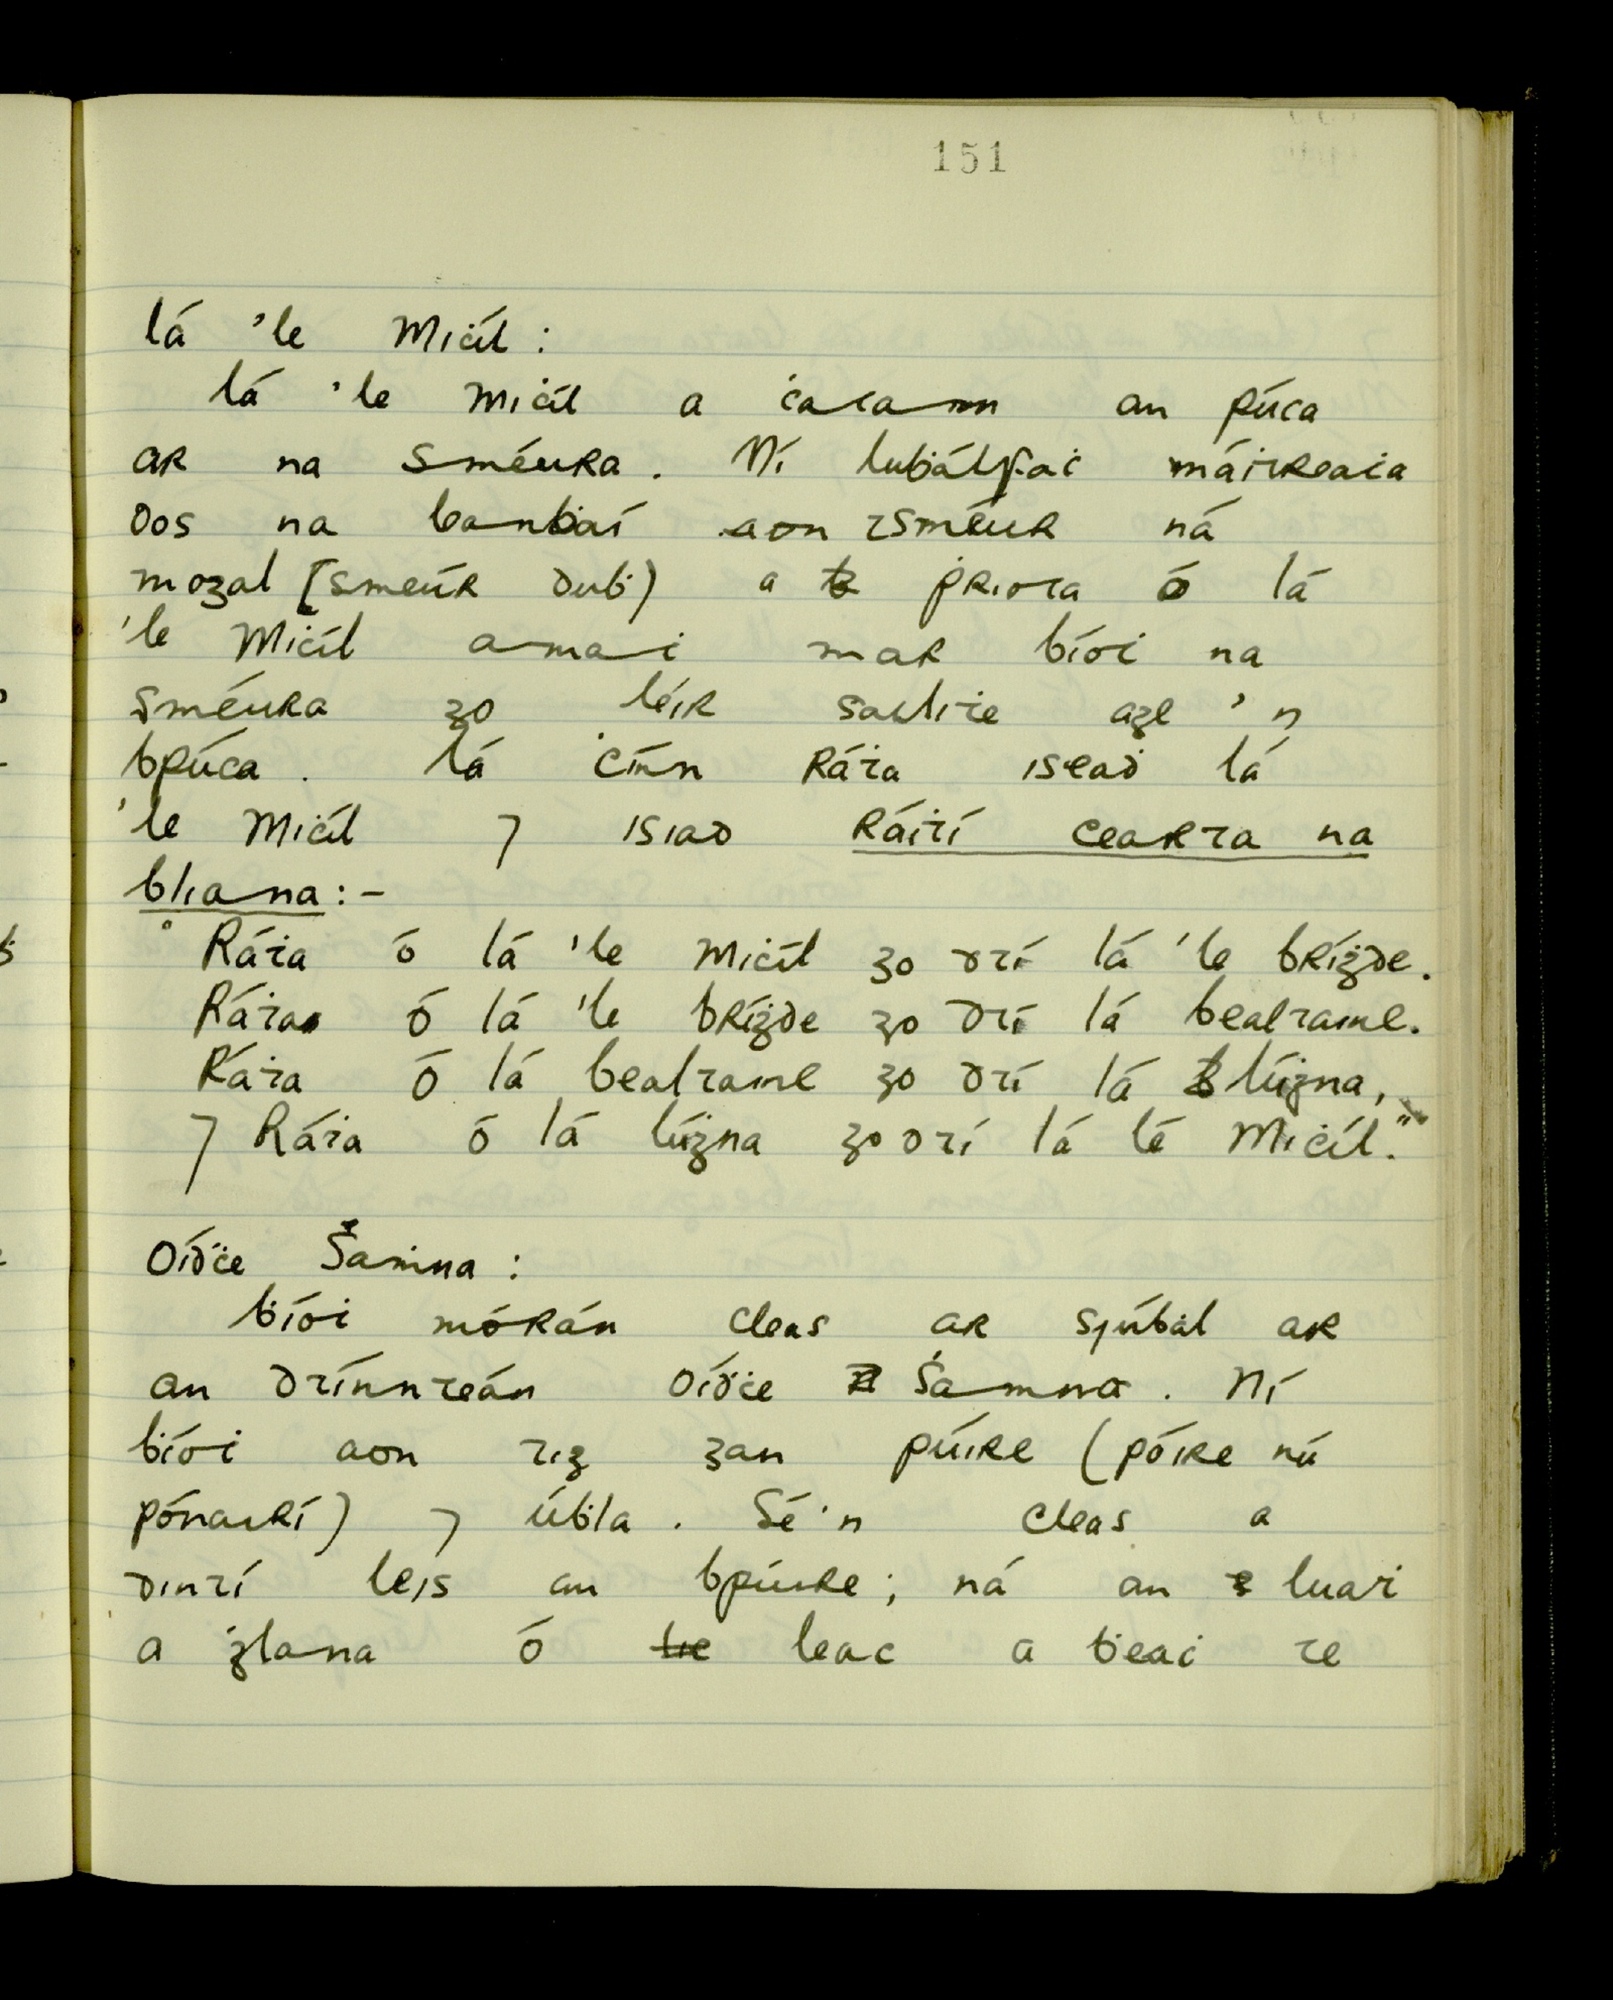 151
Lá 'le Miċíl:
Lá 'le Miċíl a ċacann an púca
ar na sméura. Ní lubálfaċ máitreaċa
dos na banbaí aon tsméur ná
mogal [sméúr duḃ) a ḟriota ó lá
'le Miċíl amaċ mar ḃíoċ na
sméura go léir saluiṫe age 'n
bpúca. Lá Ċínn Ráṫa iseaḋ lá
'le Miċíl ⁊ isiad Ráiṫí cearta na
bliana:-
"Ráṫa ó lá 'le Miċíl go dtí lá 'le Bríġde.
Ráṫa ó lá 'le Bríġde go dtí lá Bealtaine.
Ráṫa ó lá Bealtaine go dtí lá Lúġna,
⁊ Ráṫa ó lá Lúġna go dtí lá lé Miċíl."
Oíḋċe Ṡaṁna:
Ḃíoċ mórán cleas ar sjúḃal ar
an dtínnteán Oíḋċe Ṡamna. Ní
ḃíoċ aon tig gan púire (póire nú
pónairí) ⁊ úḃla. Sé'n cleas a
dintí leis an bpúire; ná an luaṫ
a ġlana ó lic leac a ḃeaċ te